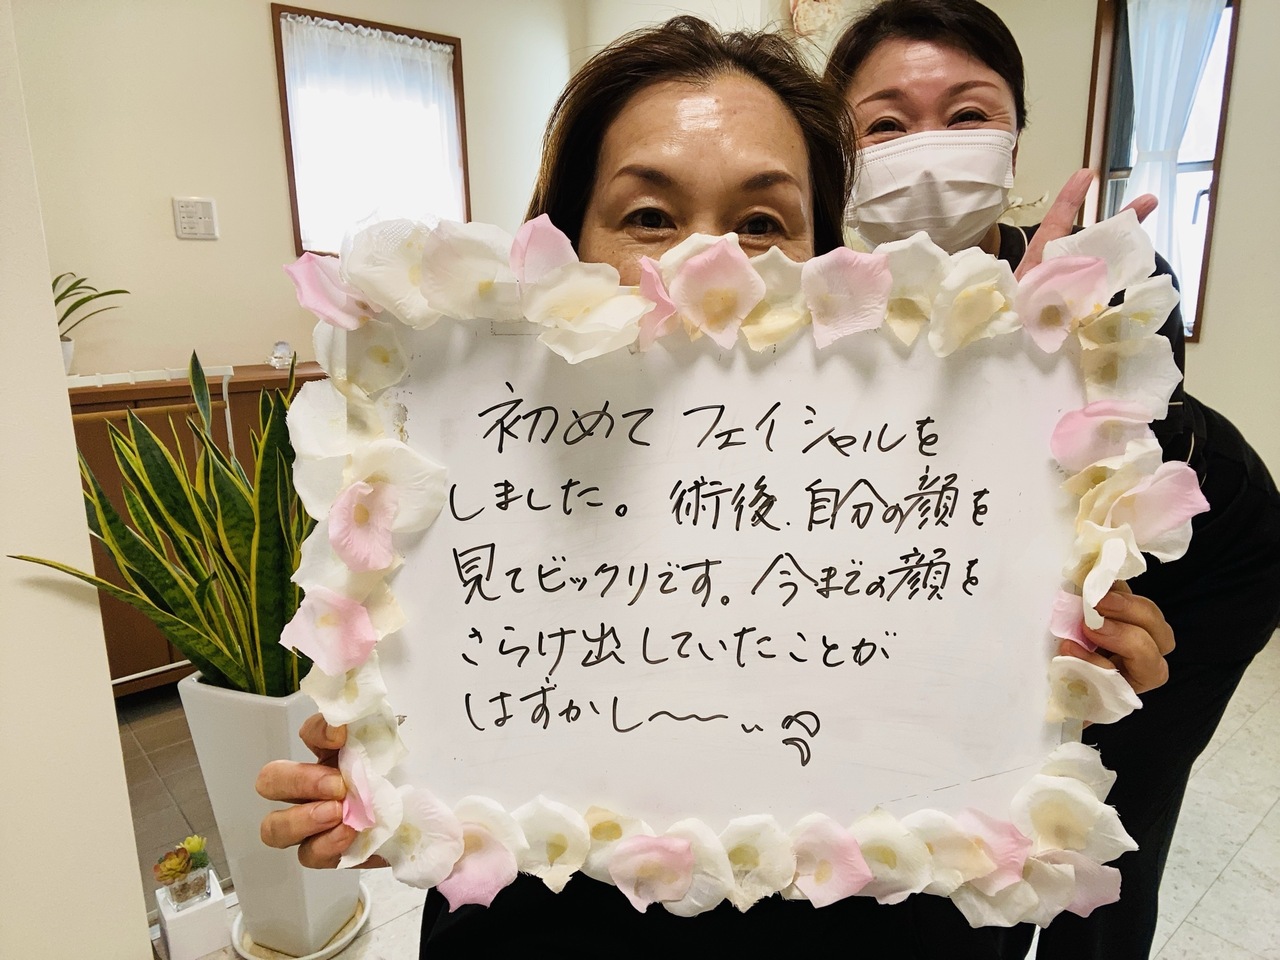 初めてフェイシャルを
しました。術後、自分の顔を
見てビックリです。今までの顔を
さらけ出していたことが
はずかし〜〜〜